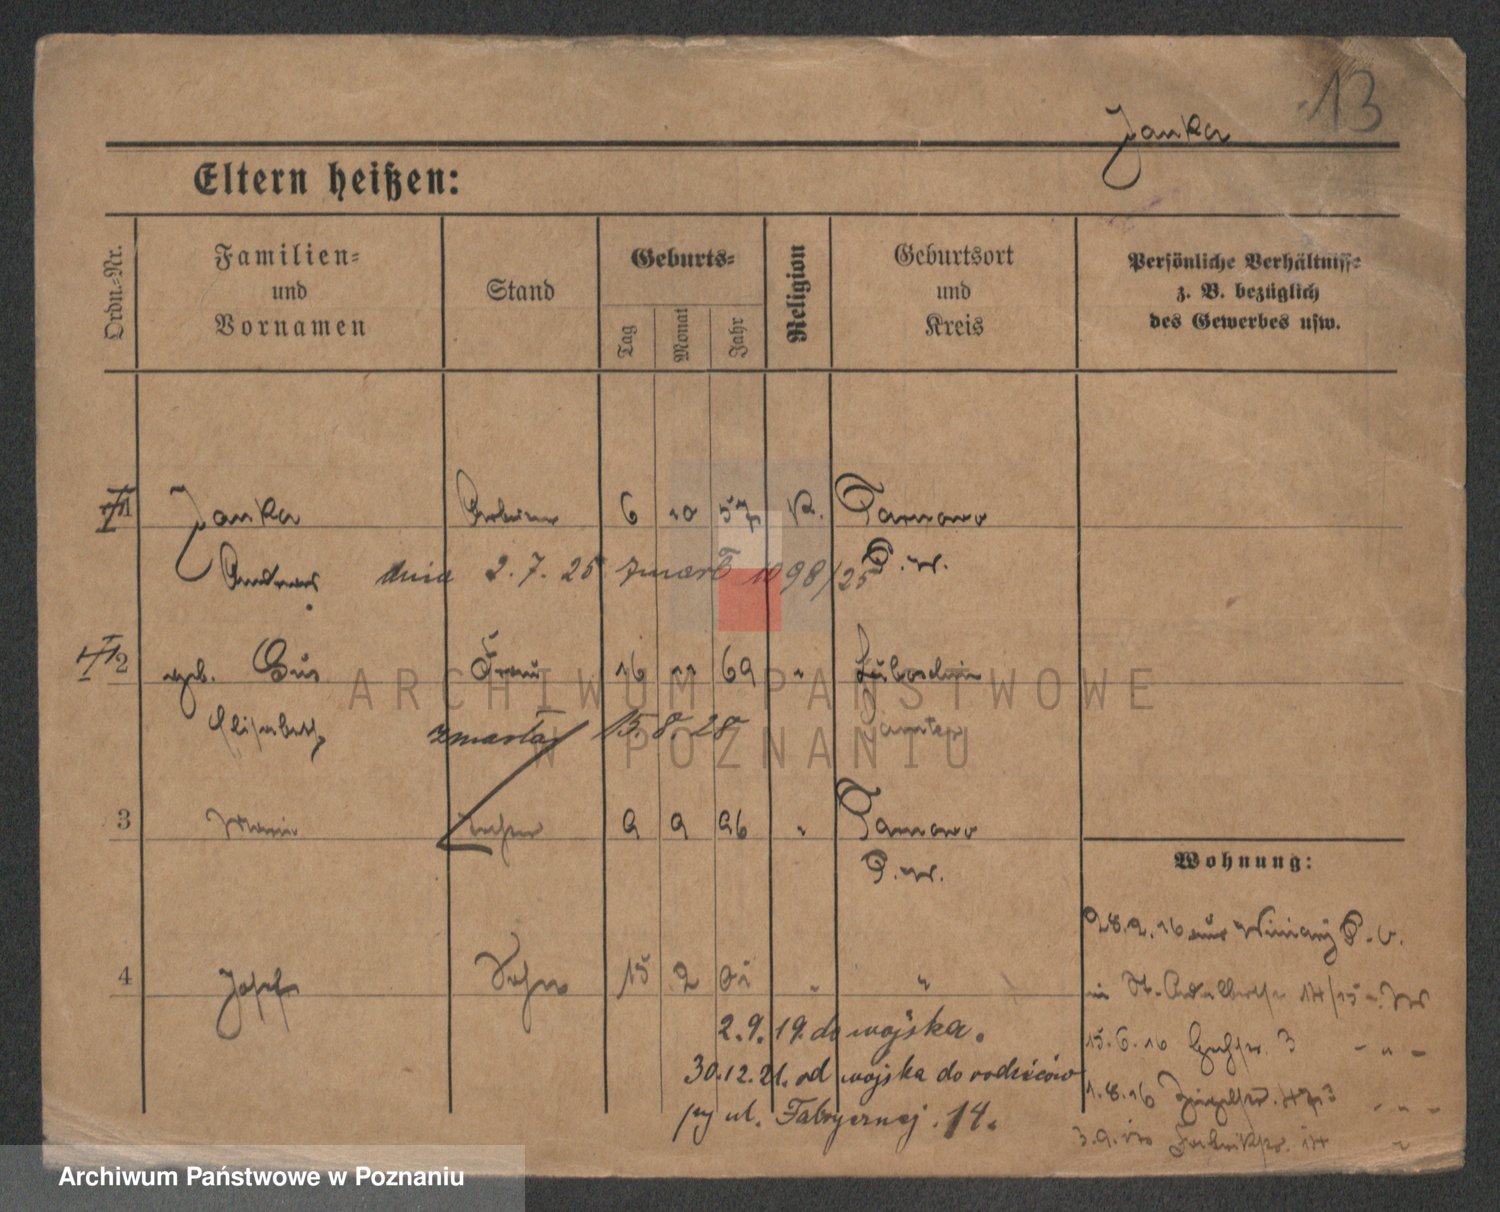 13
Janka
Eltern heißen:
Ordn.-Nr.
Familien-
und
Vornamen
Stand
Geburts-
Tag
Monat
Jahr
Religion
Geburtsort
und
Kreis
Persönliche Verhältnisse
z. B. bezüglich
des Gewerbes usw.
1 Janka 6 10 57 K. Tarnowo
Andreas dnia 2.7.25 zmarł 1098/25 P. W.
2 geb. Frau 16 11 69 "
Elisabeth zmarła 15.8.28 Samter
3 Marie Tochter 9 9 96 " Tarnowo
P. W.
Wohnung:
28.2.16 aus Winiary P. O.
4 Josef Sohn 15 2 01 " "
in St. Adalbertstr 14/15
2.9.19. do wojska.
15.6.16 3 - " -
30.12.21. od wojska do rodziców
1.8.16 - " -
przy ul. Fabrycznej. 14.
3.9. Fabrikstr. 14 "
ARCHIWUM PAŃSTWOWE
W POZNANIU
Archiwum Państwowe w Poznaniu